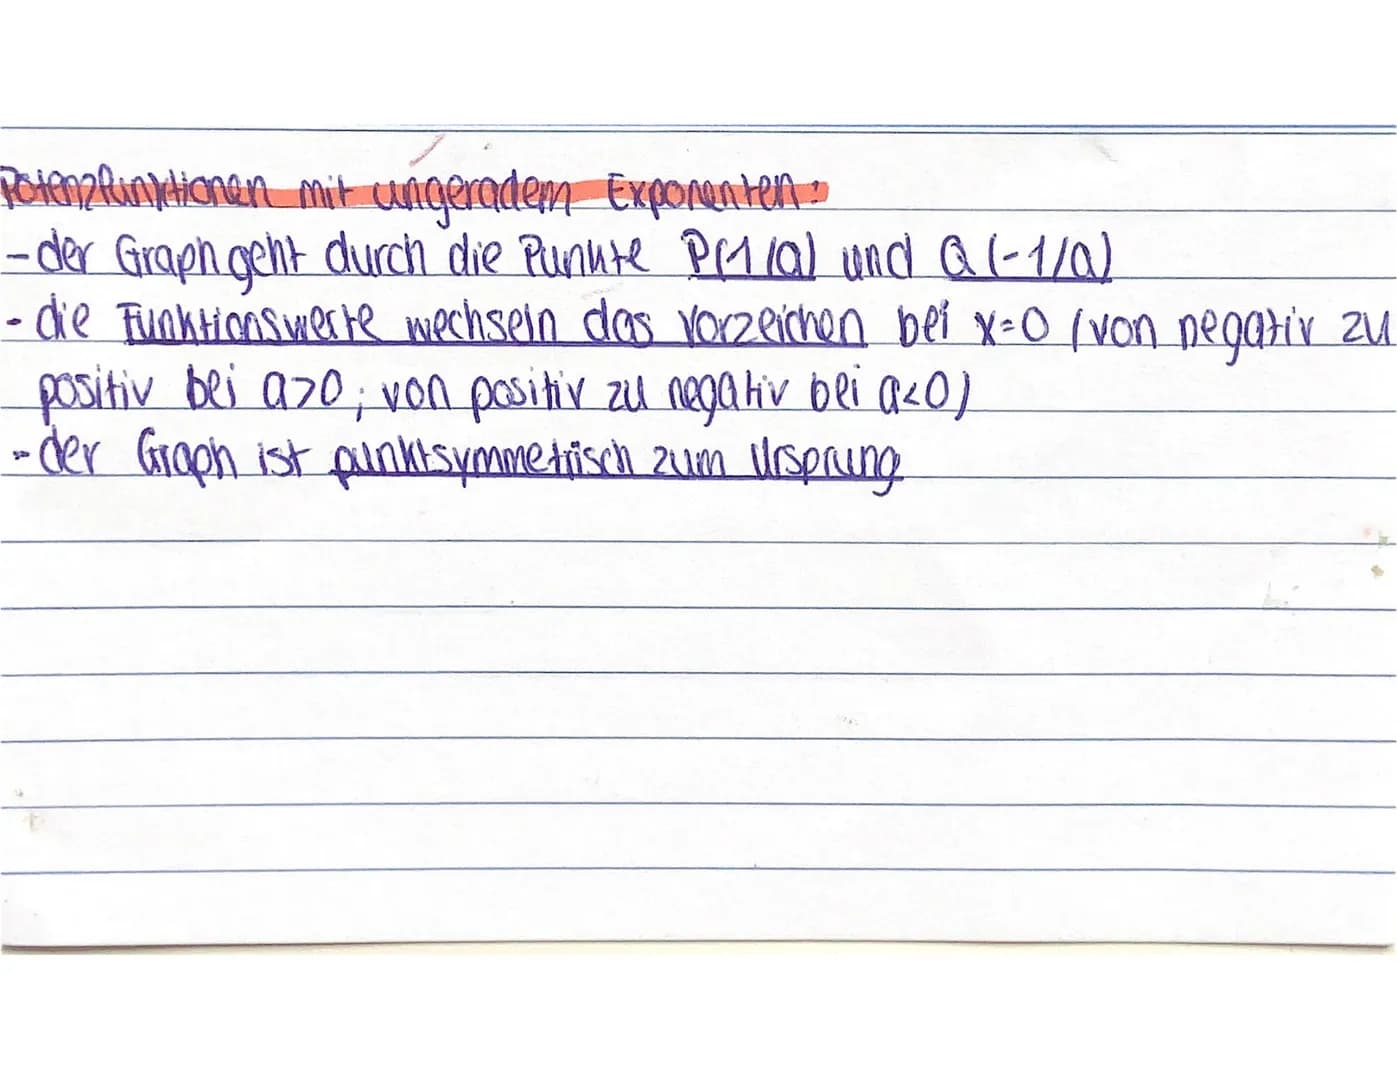 Potenzfunktionen mit ungeradem Exponenten:
- der Graph geht durch die Punkte P(1/a) und Q(-1/a)
- die Funktionswerte wechseln das Vorzeichen bei x=0 (von negativ zu
positiv bei a>0; von positiv zu negativ bei a<0)
- der Graph ist punktsymmetrisch zum Ursprung